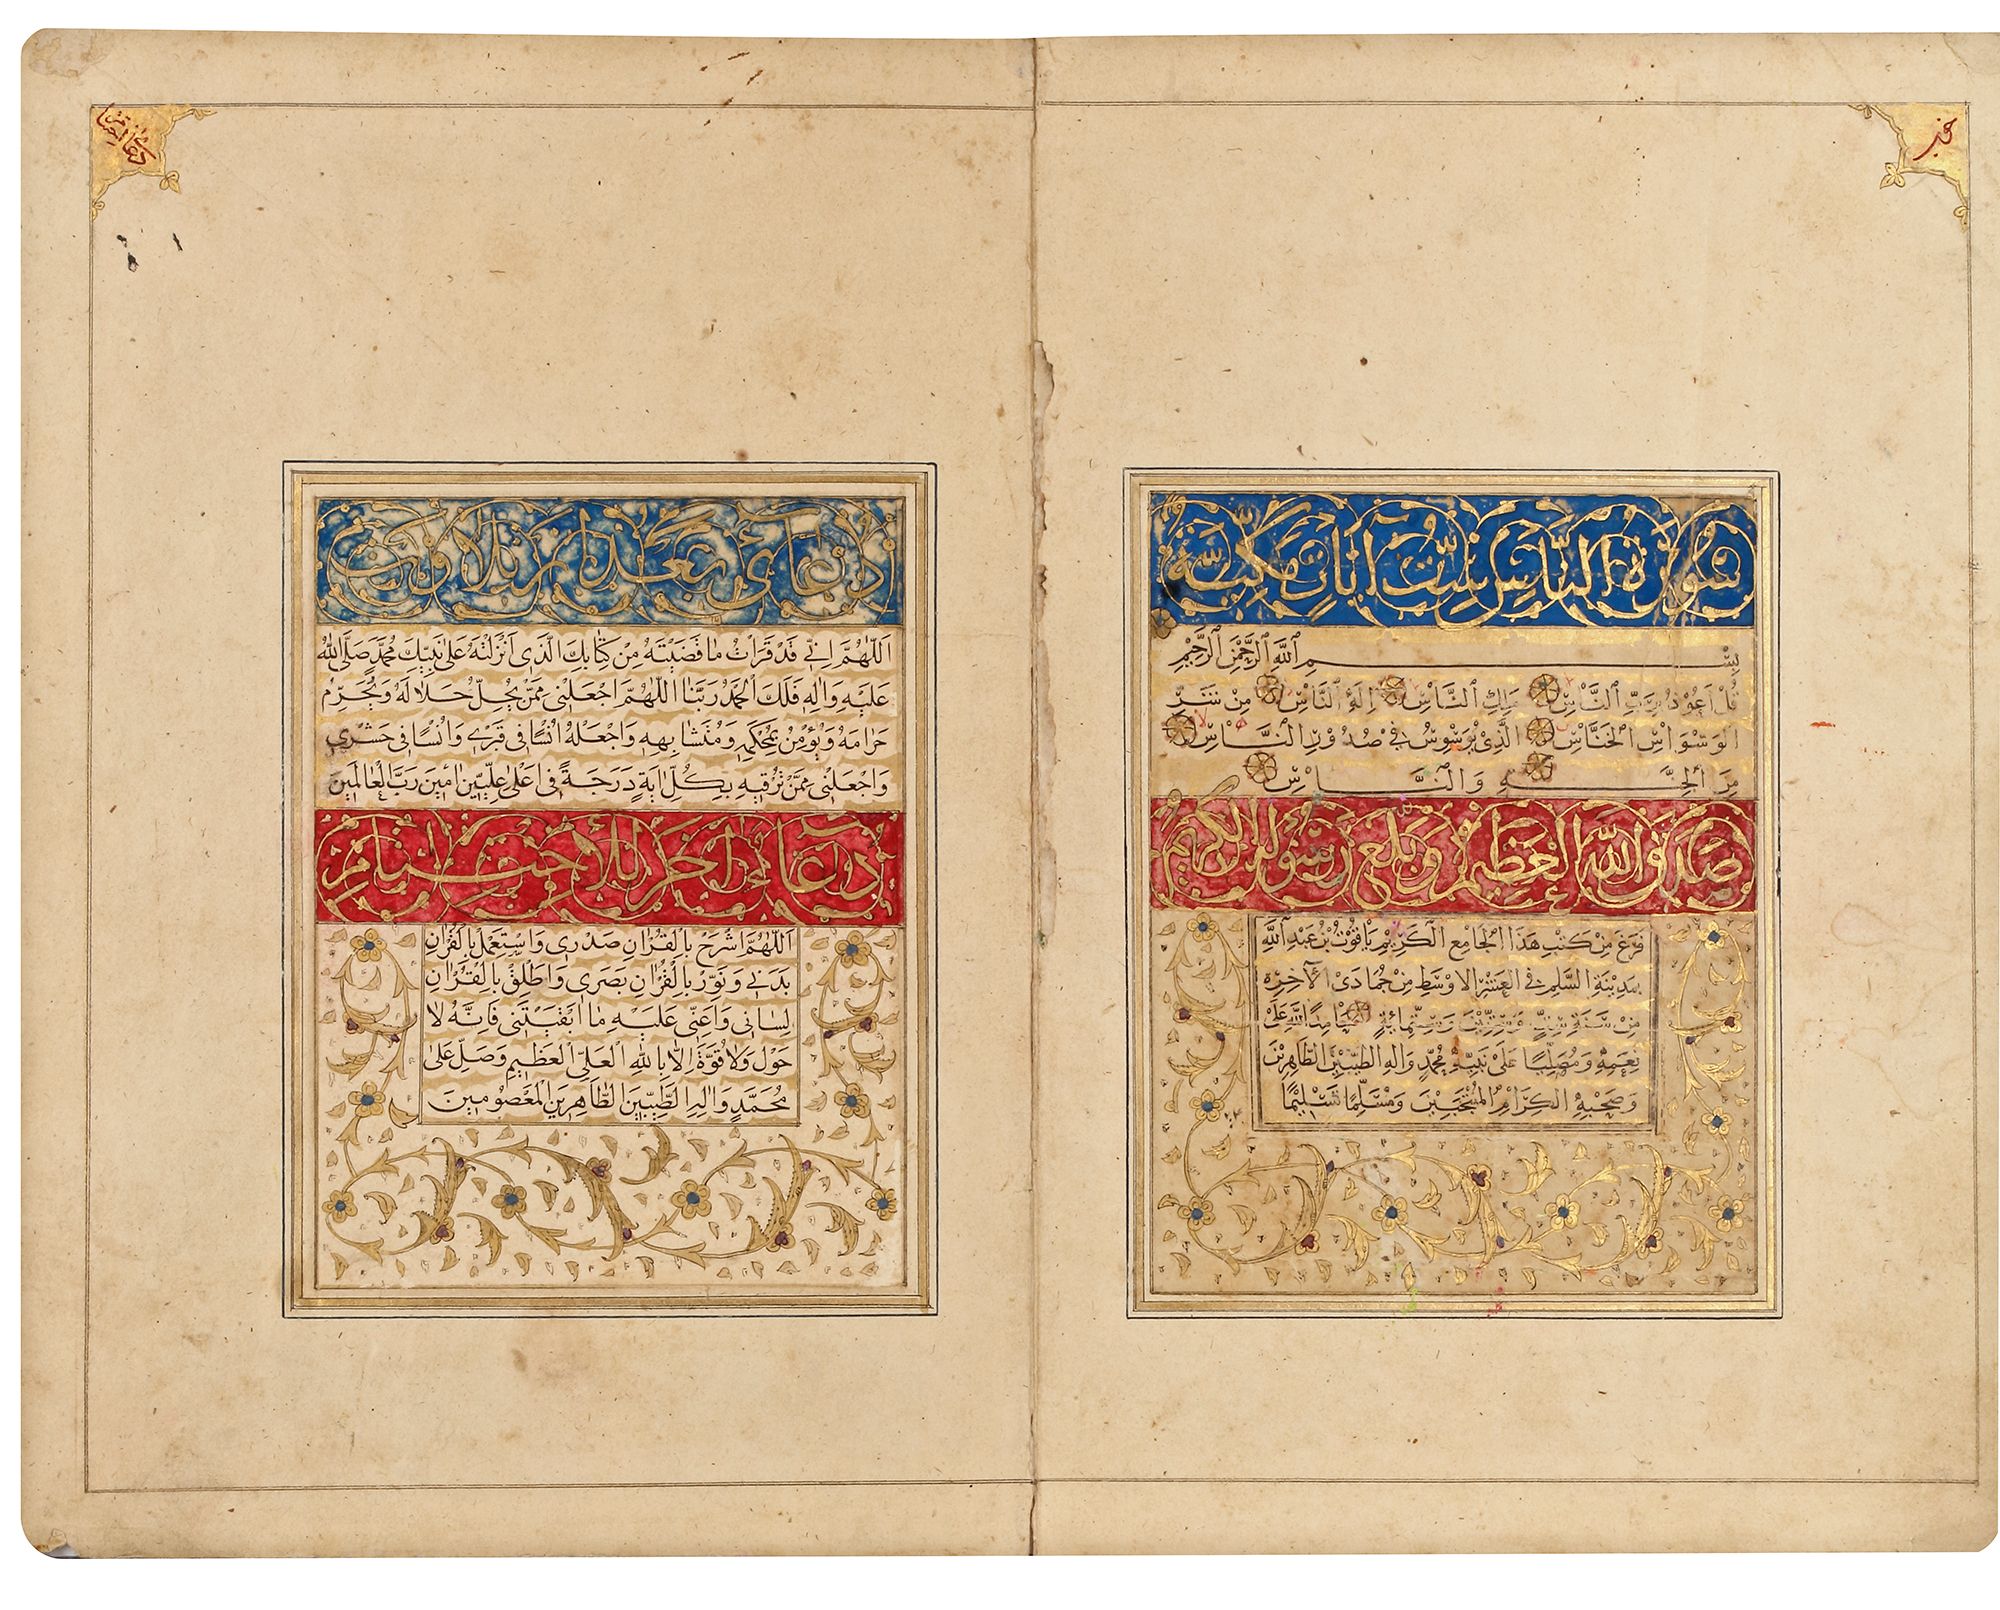 سُورَةُ النَّاسِ سِتُّ اٰيَاتٍ مَكِّيَّة
بِسْمِ ٱللّٰهِ ٱلرَّحْمٰنِ ٱلرَّحِيمِ
قُلْ اَعُوْذُ بِرَبِّ ٱلنَّاسِ مَلِكِ ٱلنَّاسِ اِلٰهِ ٱلنَّاسِ مِنْ شَرِّ
الْوَسْوَاسِ الْخَنَّاسِ الَّذِى يُوَسْوِسُ فِى صُدُورِ النَّاسِ
مِنَ الْجِنَّةِ وَالنَّاسِ
صَدَقَ اللّٰهُ الْعَظِيمُ وَبَلَّغَ رَسُولُهُ الْكَرِيمُ
فَرَغَ مِنْ كَتْبِ هٰذَا الْجَامِعِ الْكَرِيْمِ يَاقُوْتُ بْنُ عَبْدِ اللّٰهِ
بِمَدِيْنَةِ السَّلٰمِ فِى الْعَشْرِ الْاَوْسَطِ مِنْ جُمَادَى الْاٰخِرَةِ
مِنْ سَنَةِ سِتٍّ وَسِتِّيْنَ وَسِتِّمِائَةٍ حَامِدًا لِلّٰهِ عَلٰى
نِعَمِهِ وَمُصَلِّيًا عَلٰى نَبِيِّهِ مُحَمَّدٍ وَاٰلِهِ الطَّيِّبِيْنَ الطَّاهِرِيْنَ
وَصَحْبِهِ الْكِرَامِ الْمُنْتَجَبِيْنَ وَمُسَلِّمًا تَسْلِيْمًا
دعَاۤئ بعد از تلاوت
اَللّٰهُمَّ اِنِّى قَدْ قَرَاْتُ مَا قَضَيْتَهُ مِنْ كِتَابِكَ الَّذِى اَنْزَلْتَهُ عَلٰى نَبِيِّكَ مُحَمَّدٍ صَلَّى اللّٰهُ
عَلَيْهِ وَاٰلِهِ فَلَكَ الْحَمْدُ رَبَّنَا اَللّٰهُمَّ اجْعَلْنِى مِمَّنْ يُحِلُّ حَلَالَهُ وَيُحَرِّمُ
حَرَامَهُ وَيُؤْمِنُ بِمُحْكَمِهِ وَمُتَشَابِهِهِ وَاجْعَلْهُ اُنْسًا فِى قَبْرِى وَاُنْسًا فِى حَشْرِى
وَاجْعَلْنِى مِمَّنْ تُرْقِيْهِ بِكُلِّ اٰيَةٍ دَرَجَةً فِى اَعْلٰى عِلِّيِّيْنَ اٰمِيْنَ رَبَّ الْعَالَمِيْنَ
دعَاۤئ اخر للاختتام
اَللّٰهُمَّ اشْرَحْ بِالْقُرْاٰنِ صَدْرِى وَاسْتَعْمِلْ بِالْقُرْاٰنِ
بَدَنِى وَنَوِّرْ بِالْقُرْاٰنِ بَصَرِى وَاَطْلِقْ بِالْقُرْاٰنِ
لِسَانِى وَاَعِنِّى عَلَيْهِ مَا اَبْقَيْتَنِى فَاِنَّهُ لَا
حَوْلَ وَلَا قُوَّةَ اِلَّا بِاللّٰهِ الْعَلِىِّ الْعَظِيْمِ وَصَلِّ عَلٰى
مُحَمَّدٍ وَاٰلِهِ الطَّيِّبِيْنَ الطَّاهِرِيْنَ الْمَعْصُوْمِيْنَ